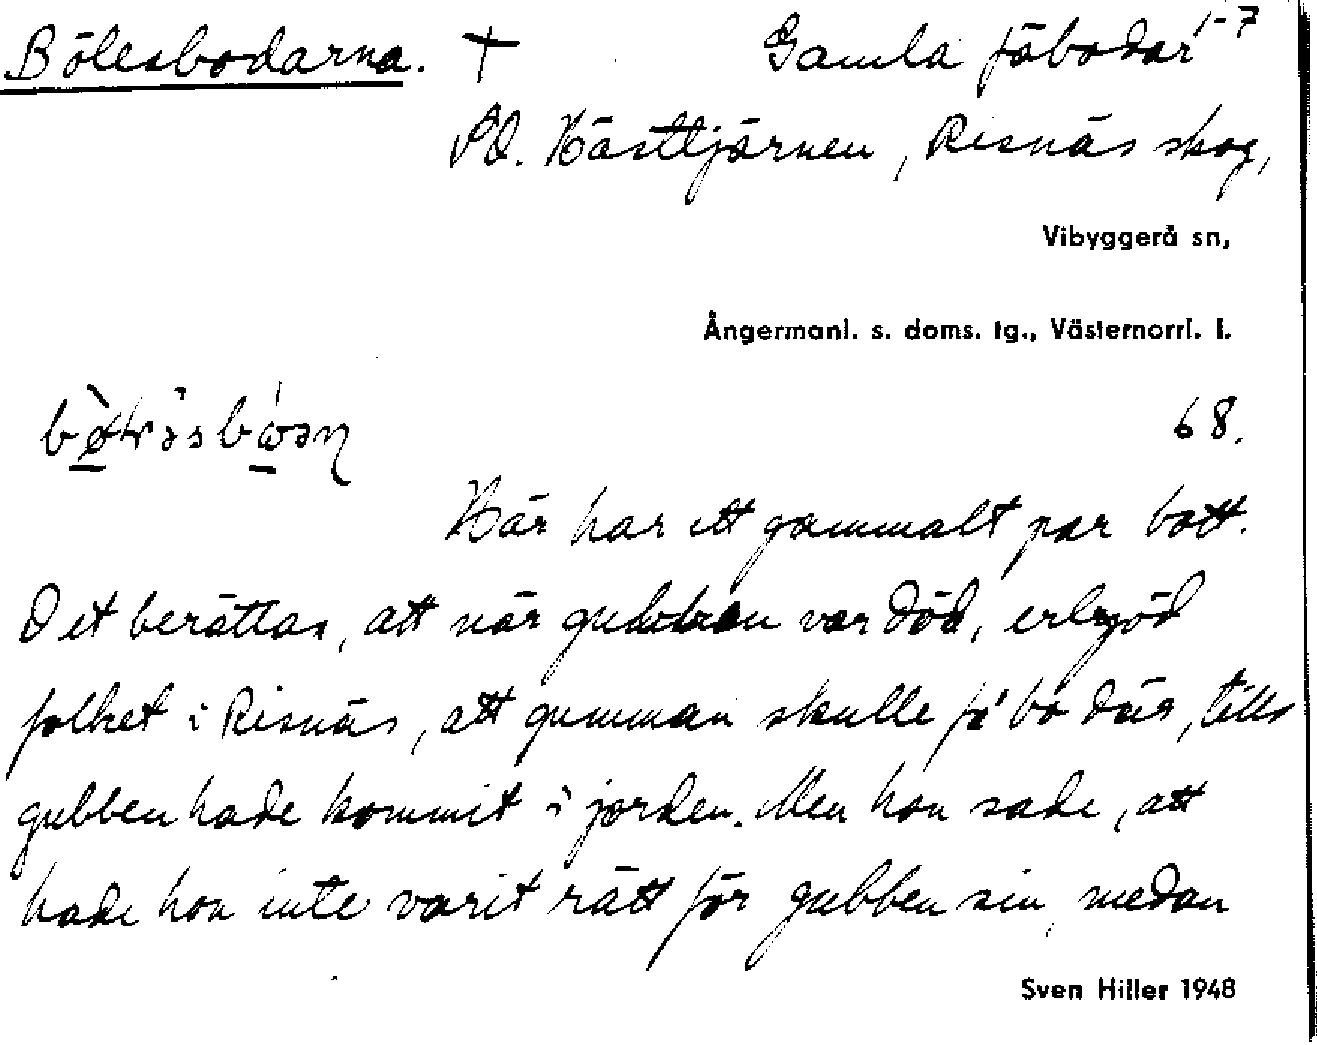 Bölesbodarna. † Gamla fäbodar 1-7
SO. Hästtjärnen, Risnäs skog,
Vibyggerå sn,
Ångermanl. s. doms. tg., Västernorrl. l.
68.
Här har ett gammalt par bott.
Det berättas, att när gubben var död, erbjöd
folket i Risnäs, att gumman skulle få bo där, tills
gubben hade kommit i jorden. Men hon sade, att
hade hon inte varit rätt för gubben sin, medan
Sven Hiller 1948